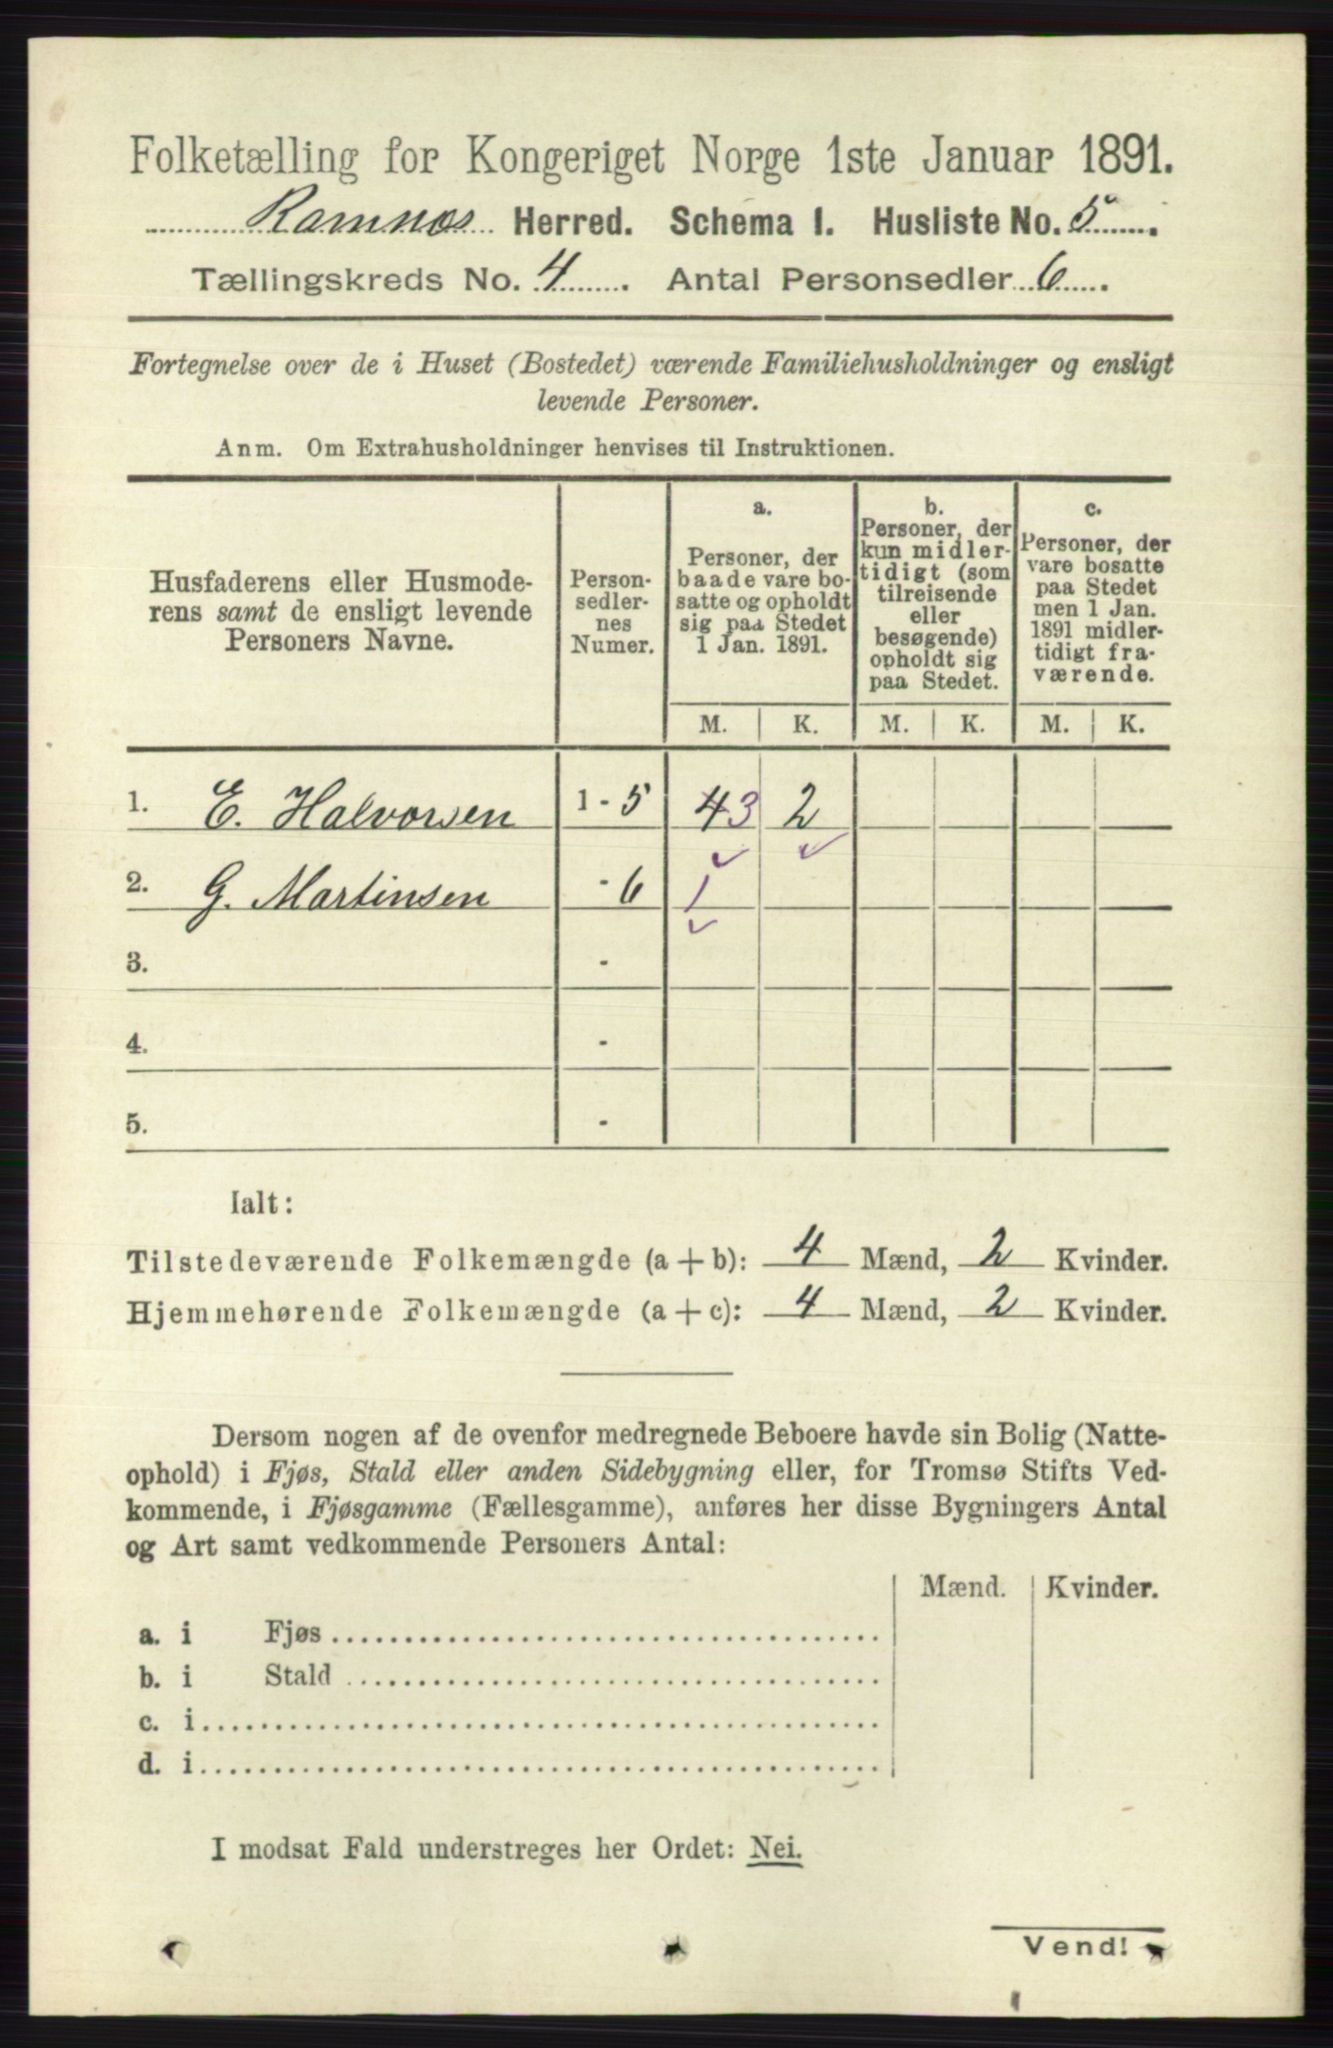 Folketælling for Kongeriget Norge 1ste Januar 1891.
Ramnæs Herred. Schema I. Husliste No. 5.
Tællingskreds No. 4. Antal Personsedler 6.
Fortegnelse over de i Huset (Bostedet) værende Familiehusholdninger og ensligt
levende Personer.
Anm. Om Extrahusholdninger henvises til Instruktionen.
Husfaderens eller Husmode-
rens samt de ensligt levende
Personers Navne.
Person-
sedler-
nes
Numer.
a.
Personer, der
baade vare bo-
satte og opholdt
sig paa Stedet
1 Jan. 1891.
b.
Personer, der
kun midler-
tidigt (som
tilreisende
eller
besøgende)
opholdt sig
paa Stedet.
c.
Personer, der
vare bosatte
paa Stedet
men 1 Jan.
1891 midler-
tidigt fra-
værende.
M. K. M. K. M. K.
1. E. Halvorsen 1 - 5 4 3 2
2. G. Martinsen - 6 1
3. -
4. -
5. -
Ialt:
Tilstedeværende Folkemængde (a + b): 4 Mænd, 2 Kvinder.
Hjemmehørende Folkemængde (a + c): 4 Mænd, 2 Kvinder.
Dersom nogen af de ovenfor medregnede Beboere havde sin Bolig (Natte-
ophold) i Fjøs, Stald eller anden Sidebygning eller, for Tromsø Stifts Ved-
kommende, i Fjøsgamme (Fællesgamme), anføres her disse Bygningers Antal
og Art samt vedkommende Personers Antal:
Mænd. Kvinder.
a. i Fjøs
b. i Stald
c. i
d. i
I modsat Fald understreges her Ordet: Nei.
Vend!